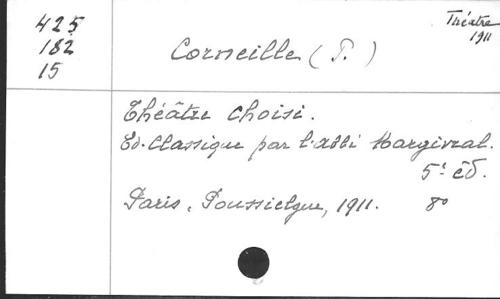 425
182
15
Théatre
1911
Corneille (P.)
Théâtre choisi.
Ed. Classique par l'abbé Margival.
5e éd.
Paris, Poussielgue, 1911. 8o